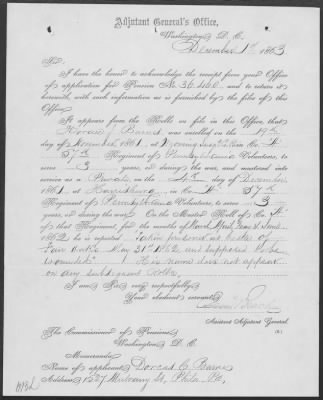 Adjutant General's Office,
Washington, D. C.
December 1st, 1863
Sir:
I have the honor to acknowledge the receipt from your Office
of application for Pension No. 36,460, and to return it
herewith, with such information as is furnished by the files of this
Office.
It appears from the Rolls on file in this Office, that
J. Barnes was enrolled on the 19th
day of November, 1861, at in Co. H,
57th Regiment of Pennsylvania Volunteers, to
serve 3 years, or during the war, and mustered into
service as a Private on the day of December
1861, at Harrisburg, in Co. H, 57th
Regiment of Pennsylvania Volunteers, to serve 3
years, or during the war. On the Muster Roll of Co. H
of that Regiment, for the months of
1862, he is reported Taken prisoner at battle of
Fair Oaks May 31st 1862 and supposed to be
wounded. His name does not appear
on any subsequent Rolls.
I am, Sir, very respectfully,
Your obedient servant,
Assistant Adjutant General.
The Commissioner of Pensions,
Washington, D. C.
Memoranda:
Name of applicant, Barnes
Address, 1227 Mulberry St, Phila. Pa,